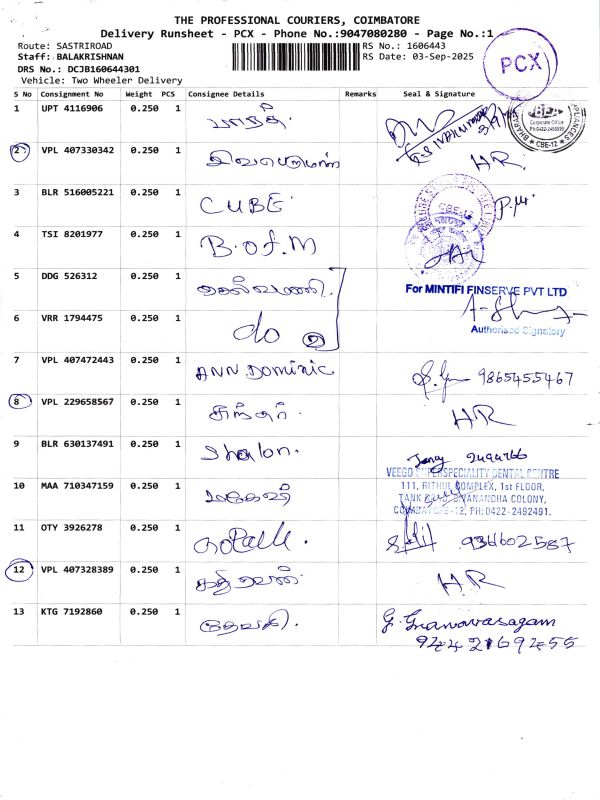 THE PROFESSIONAL COURIERS, COIMBATORE
Delivery Runsheet - PCX - Phone No.:9047080280 - Page No.:1
Route: SASTRIROAD
RS No.: 1606443
Staff: BALAKRISHNAN
RS Date: 03-Sep-2025
DRS No.: DCJB160644301
Vehicle: Two Wheeler Delivery
PCX
S No Consignment No Weight PCS Consignee Details Remarks Seal & Signature
1 UPT 4116906 0.250 1
Corporate Office
CBE-12
2 VPL 407330342 0.250 1 HR
3 BLR 516005221 0.250 1 CUBE
4 TSI 8201977 0.250 1 B.of.M
5 DDG 526312 0.250 1 செல்வமணி. For MINTIFI FINSERVE PVT LTD
6 VRR 1794475 0.250 1 do ②
Authorised Signatory
7 VPL 407472443 0.250 1 ANN DOMINIC 9865455467
8 VPL 229658567 0.250 1 HR
9 BLR 630137491 0.250 1 Shalon.
VEEGO SUPERSPECIALITY DENTAL CENTRE
10 MAA 710347159 0.250 1 மகேஷ் 111, RITHUL COMPLEX, 1st FLOOR,
TANK ROAD, SIVANANDHA COLONY,
COIMBATORE-12, PH:0422-2492491.
11 OTY 3926278 0.250 1 9366602587
12 VPL 407328389 0.250 1 H.R
13 KTG 7192860 0.250 1 தேவகி. G. Gnanavasagam
9442169455